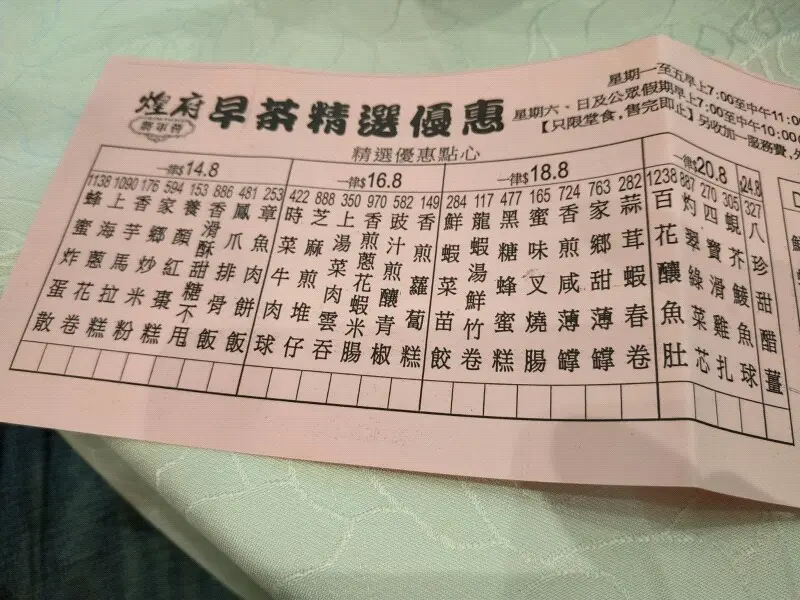 煌府
早茶精選優惠
星期一至五早上7:00至中午11:00
星期六、日及公眾假期早上7:00至中午10:00
【只限堂食,售完即止】另收加一服務費,
精選優惠點心
一律$14.8
1138 蜂蜜炸蛋散
1090 上海蔥花卷
176 香芋馬拉糕
594 家鄉炒米粉
153 養顏紅棗糕
886 香滑酥甜糖不甩
481 鳳爪排骨飯
253 章魚肉餅飯
一律$16.8
422 時菜牛肉球
888 芝麻煎堆仔
350 上湯菜肉雲吞
970 香煎蔥花蝦米腸
582 豉汁煎釀青椒
149 香煎蘿蔔糕
一律$18.8
284 鮮蝦菜苗餃
117 龍蝦湯鮮竹卷
477 黑糖蜂蜜糕
165 蜜味叉燒腸
724 香煎咸薄罉
763 家鄉甜薄罉
282 蒜茸蝦春卷
一律$20.8
1238 百花釀魚肚
887 灼翠綠菜芯
270 四寶滑雞扎
305 蜆芥鯪魚球
$24.8
327 八珍甜醋薑